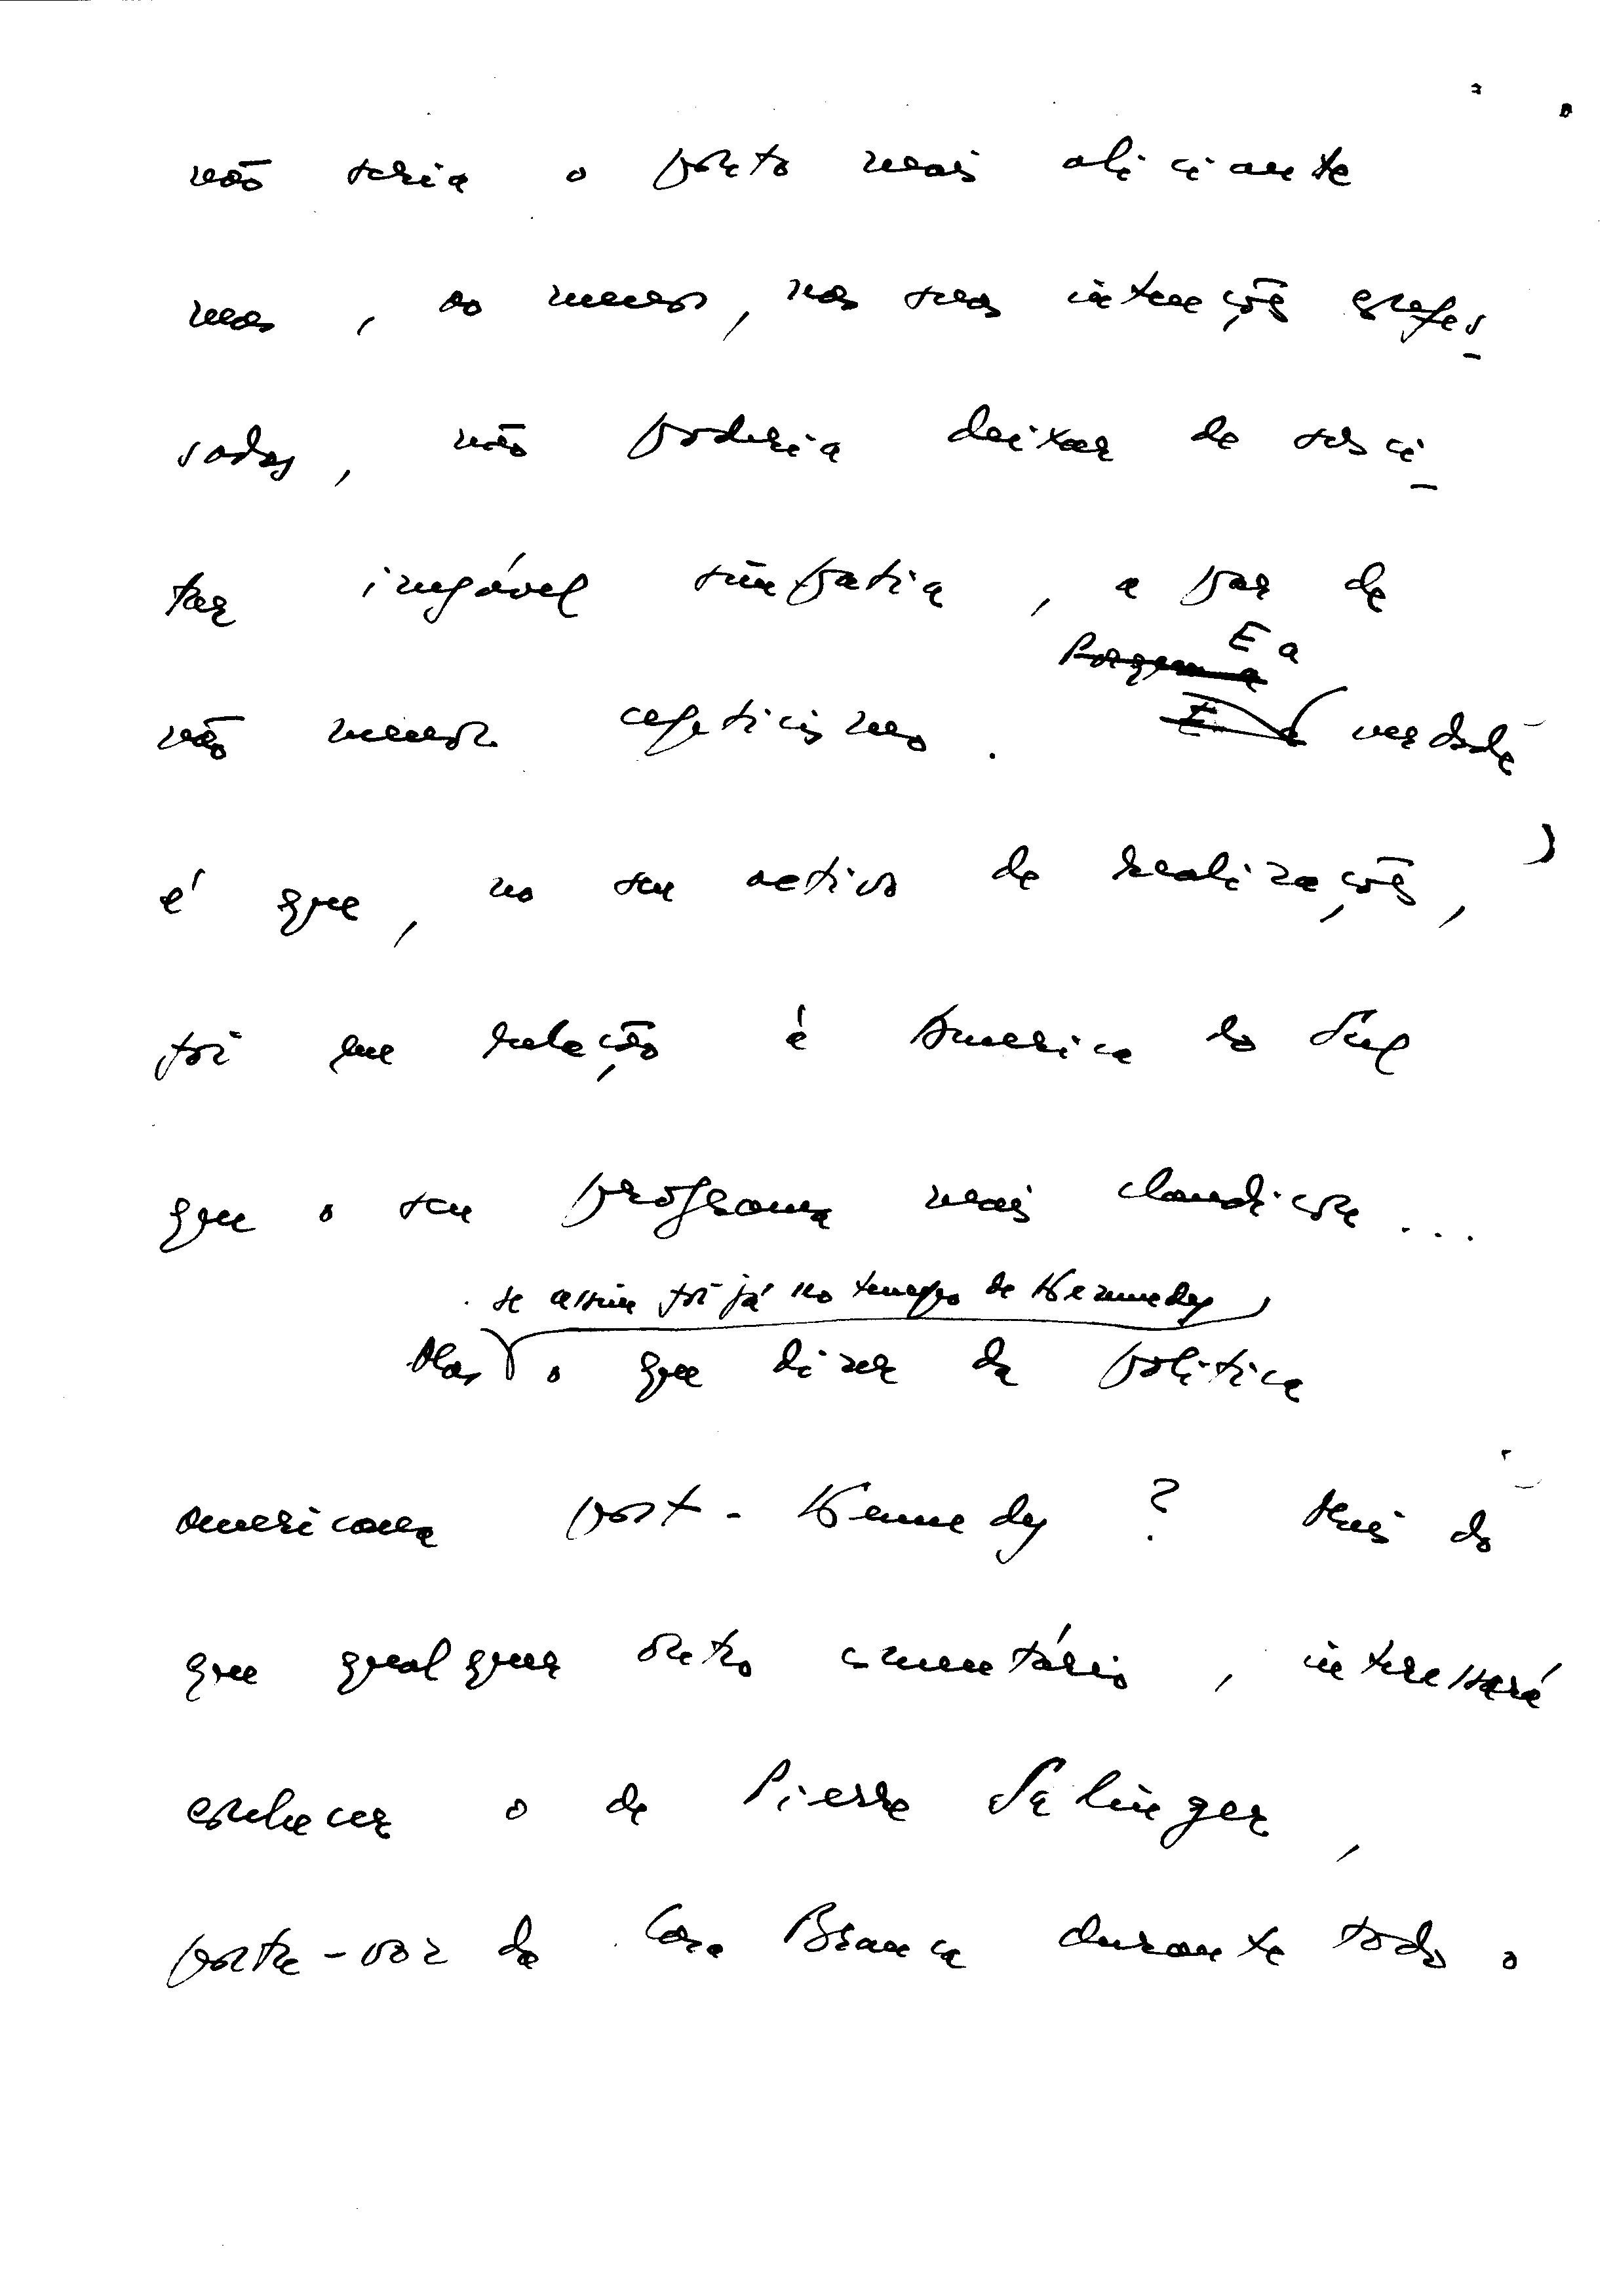 não seria o ponto mais aliciante
mas, ao menos, nas suas intenções expres-
sadas, não poderia deixar de susci-
tar inegável simpatia, a par de
Porque a E a
não menor cepticismo. E a verdade
é que, no seu activo de realizações,
foi em relação à America do Sul
que o seu programa mais claudicou...
se assim foi já no tempo de Kennedy,
Mas o que dizer da politica
americana post-Kennedy? Mais do
que qualquer outro comentário, interessará
conhecer o de Pierre Salinger,
porta-voz da Casa Branca durante todo o